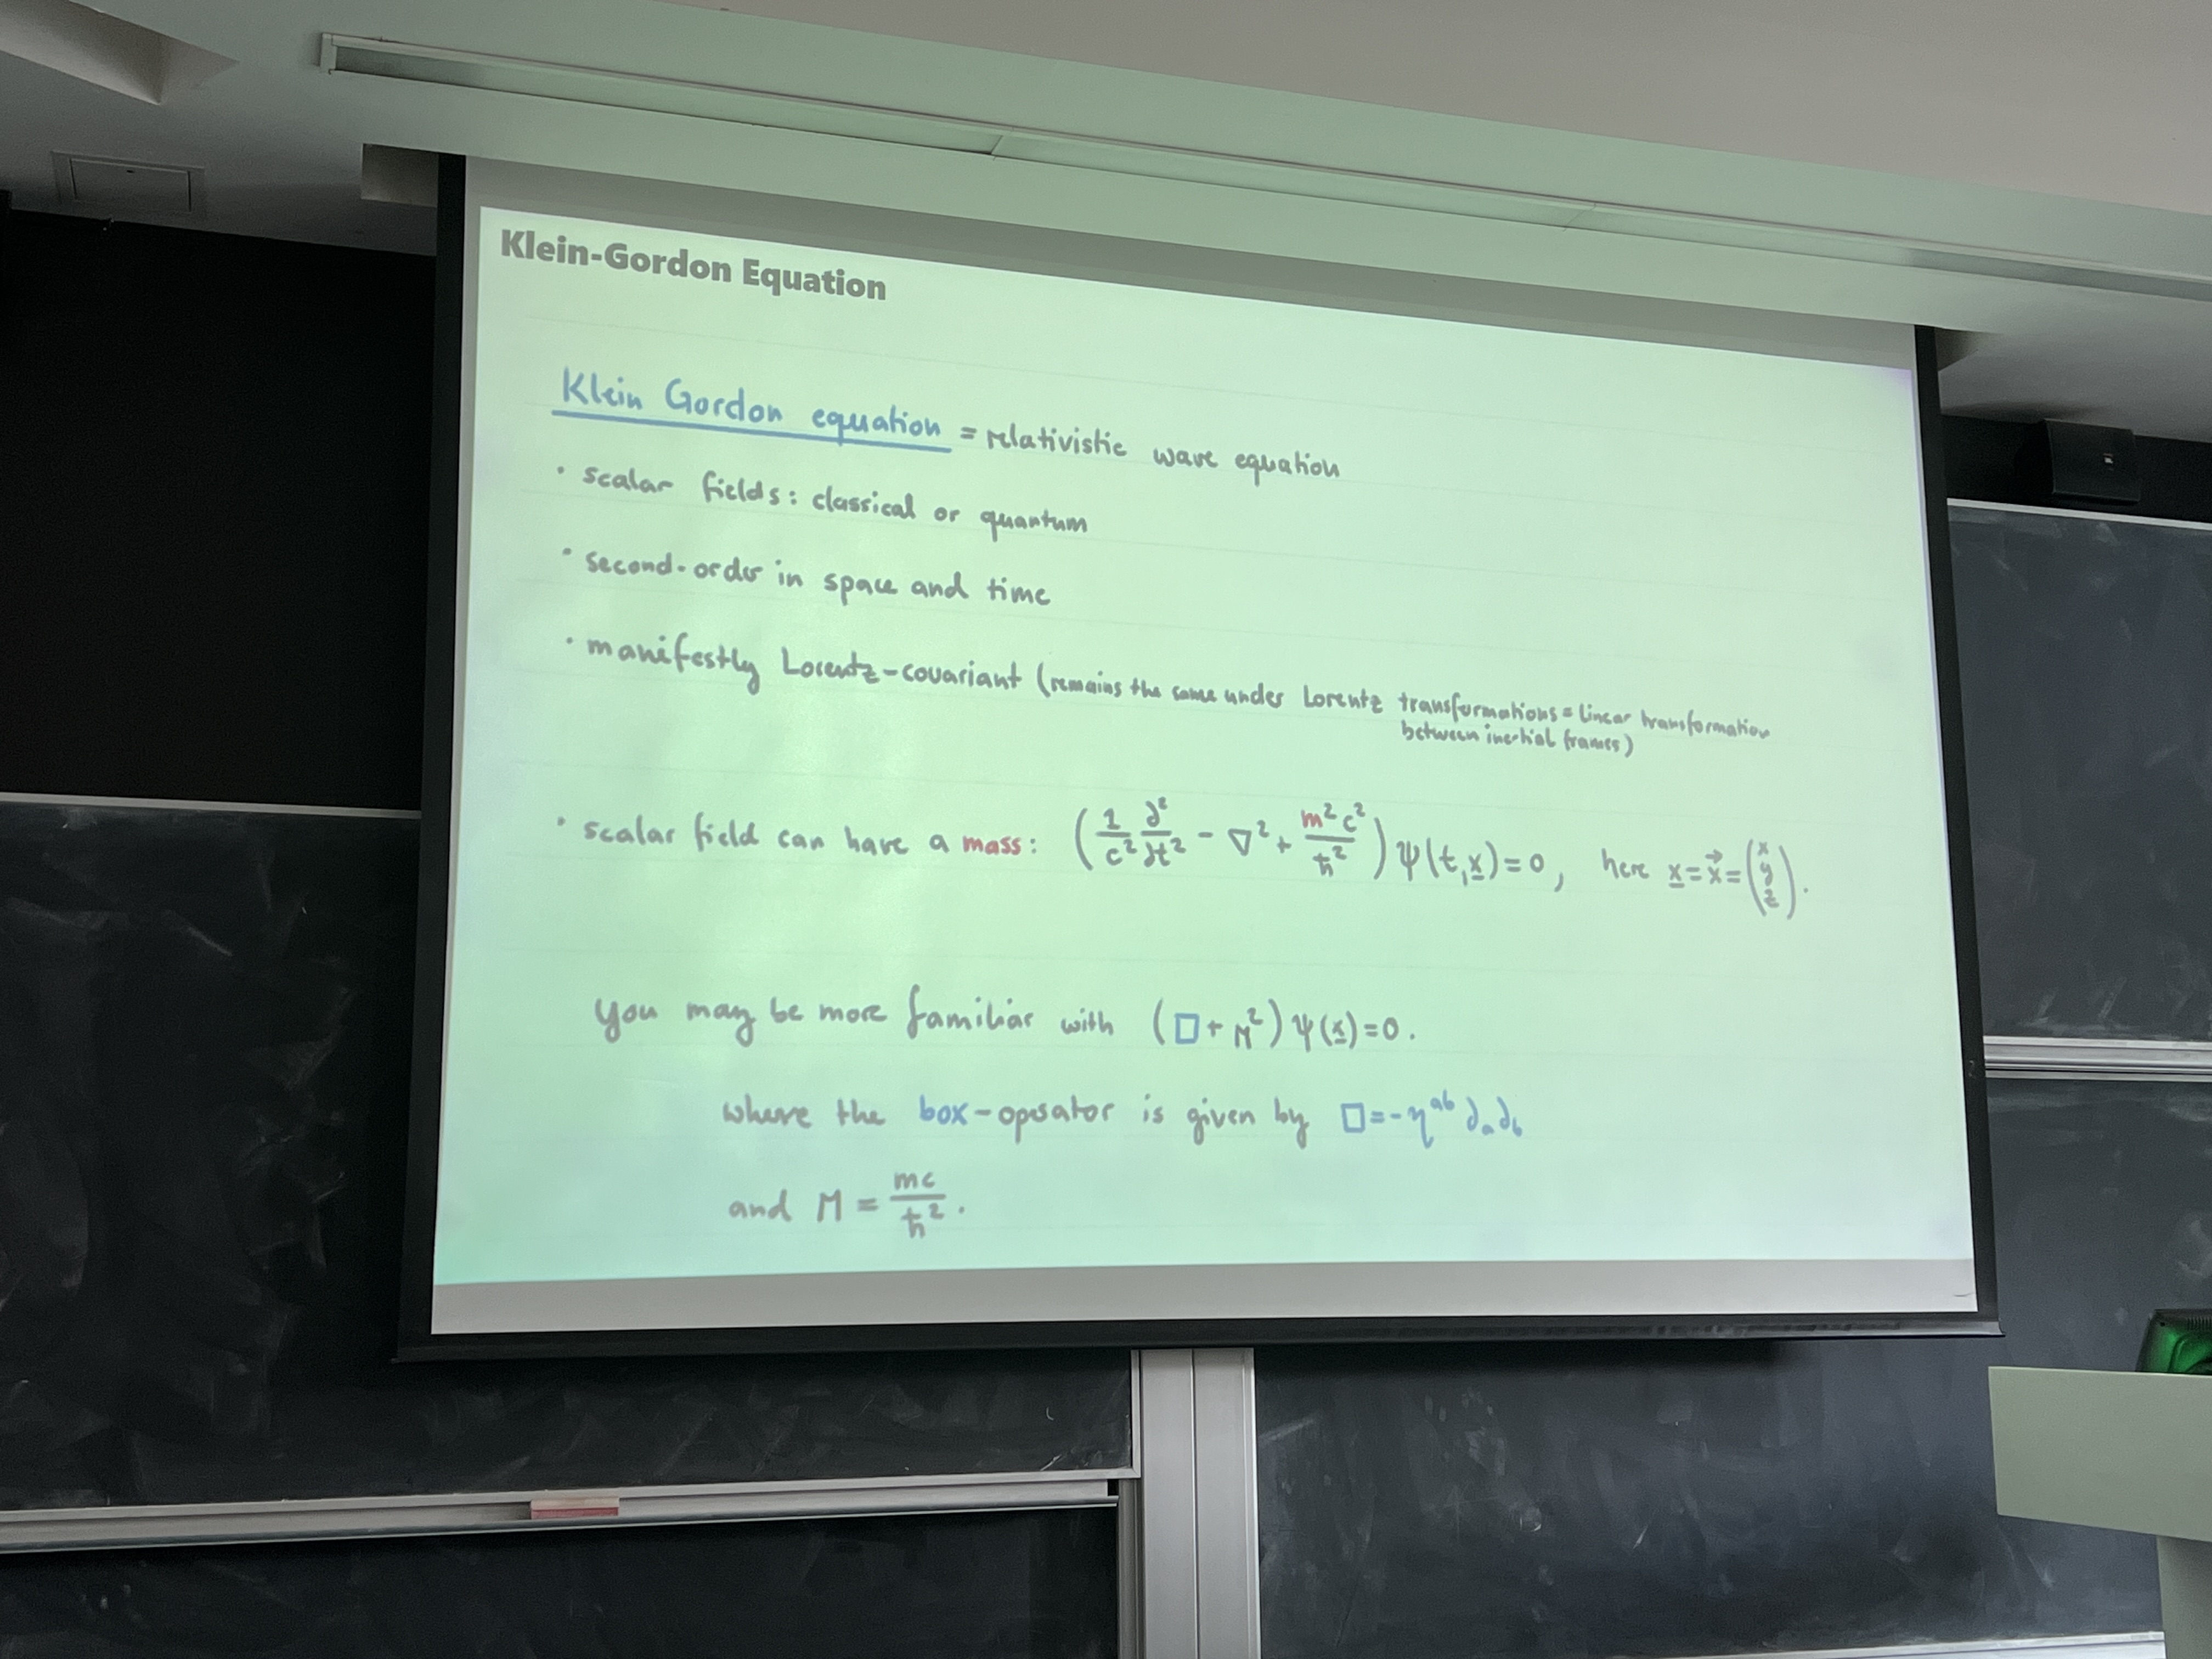 Klein-Gordon Equation
Klein Gordon equation = relativistic wave equation
• scalar fields: classical or quantum
• second-order in space and time
• manifestly Lorentz-covariant (remains the same under Lorentz transformations = linear transformation
between inertial frames)
• scalar field can have a mass: (1/c² ∂²/∂t² - ∇² + m²c²/ħ²) ψ(t, x̲) = 0, here x̲ = x⃗ = (x y z).
you may be more familiar with (□ + M²) ψ(x̲) = 0.
where the box-operator is given by □ = -η^{ab} ∂_a ∂_b
and M = mc/ħ².